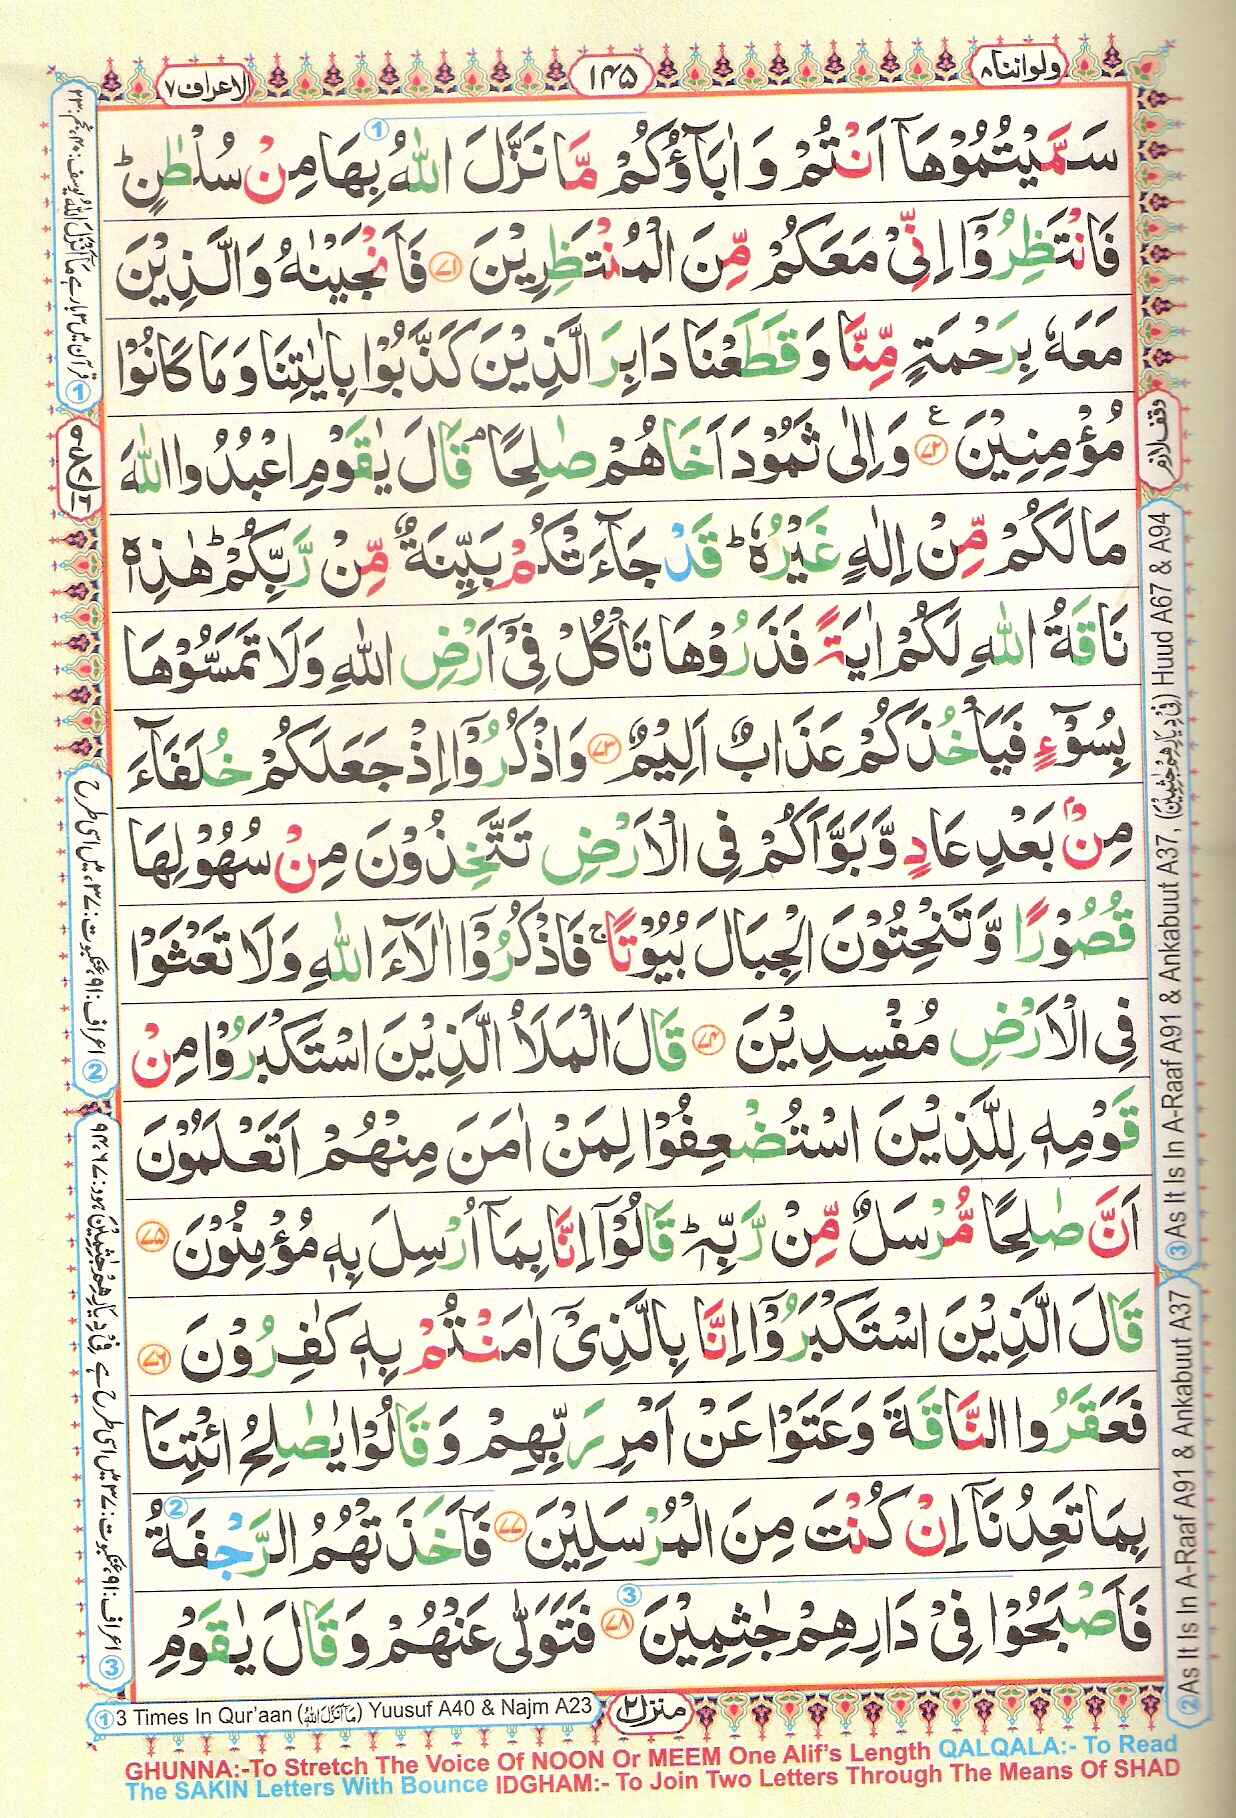 ولواننا ۸
۱۴۵
الاعراف ۷
سَمَّيْتُمُوْهَاۤ اَنْتُمْ وَاٰبَآؤُكُمْ مَّا نَزَّلَ اللّٰهُ بِهَا مِنْ سُلْطٰنٍؕ
فَانْتَظِرُوْۤا اِنِّىْ مَعَكُمْ مِّنَ الْمُنْتَظِرِيْنَ ﴿۷۱﴾ فَاَنْجَيْنٰهُ وَالَّذِيْنَ
مَعَهٗ بِرَحْمَةٍ مِّنَّا وَقَطَعْنَا دَابِرَ الَّذِيْنَ كَذَّبُوْا بِاٰيٰتِنَا وَمَا كَانُوْا
مُؤْمِنِيْنَ ﴿۷۲﴾ع وَاِلٰى ثَمُوْدَ اَخَاهُمْ صٰلِحًاۘ قَالَ يٰقَوْمِ اعْبُدُوا اللّٰهَ
مَا لَكُمْ مِّنْ اِلٰهٍ غَيْرُهٗؕ قَدْ جَآءَتْكُمْ بَيِّنَةٌ مِّنْ رَّبِّكُمْؕ هٰذِهٖ
نَاقَةُ اللّٰهِ لَكُمْ اٰيَةً فَذَرُوْهَا تَاْكُلْ فِىْۤ اَرْضِ اللّٰهِ وَلَا تَمَسُّوْهَا
بِسُوْٓءٍ فَيَاْخُذَكُمْ عَذَابٌ اَلِيْمٌ ﴿۷۳﴾ وَاذْكُرُوْۤا اِذْ جَعَلَكُمْ خُلَفَآءَ
مِنْۢ بَعْدِ عَادٍ وَّبَوَّاَكُمْ فِى الْاَرْضِ تَتَّخِذُوْنَ مِنْ سُهُوْلِهَا
قُصُوْرًا وَّتَنْحِتُوْنَ الْجِبَالَ بُيُوْتًاۚ فَاذْكُرُوْۤا اٰلَآءَ اللّٰهِ وَلَا تَعْثَوْا
فِى الْاَرْضِ مُفْسِدِيْنَ ﴿۷۴﴾ قَالَ الْمَلَاُ الَّذِيْنَ اسْتَكْبَرُوْا مِنْ
قَوْمِهٖ لِلَّذِيْنَ اسْتُضْعِفُوْا لِمَنْ اٰمَنَ مِنْهُمْ اَتَعْلَمُوْنَ
اَنَّ صٰلِحًا مُّرْسَلٌ مِّنْ رَّبِّهٖؕ قَالُوْۤا اِنَّا بِمَاۤ اُرْسِلَ بِهٖ مُؤْمِنُوْنَ ﴿۷۵﴾
قَالَ الَّذِيْنَ اسْتَكْبَرُوْۤا اِنَّا بِالَّذِىْۤ اٰمَنْتُمْ بِهٖ كٰفِرُوْنَ ﴿۷۶﴾
فَعَقَرُوا النَّاقَةَ وَعَتَوْا عَنْ اَمْرِ رَبِّهِمْ وَقَالُوْا يٰصٰلِحُ ائْتِنَا
بِمَا تَعِدُنَاۤ اِنْ كُنْتَ مِنَ الْمُرْسَلِيْنَ ﴿۷۷﴾ فَاَخَذَتْهُمُ الرَّجْفَةُ
فَاَصْبَحُوْا فِىْ دَارِهِمْ جٰثِمِيْنَ ﴿۷۸﴾ فَتَوَلّٰى عَنْهُمْ وَقَالَ يٰقَوْمِ
وقف لازم
③ As It Is In A-Raaf A91 & Ankabuut A37, (فِىْ دِيَارِهِمْ جٰثِمِيْنَ) Huud A67 & A94
② As It Is In A-Raaf A91 & Ankabuut A37
② اعراف:۹۱، عنکبوت:۳۷ میں اسی طرح
③ اعراف:۹۱، عنکبوت:۳۷ میں اسی طرح ہے فِىْ دِيَارِهِمْ جٰثِمِيْنَ ہود:۶۷، ۹۴
منزل ۲
① 3 Times In Qur'aan (مَاۤ اَنْزَلَ اللّٰهُ) Yuusuf A40 & Najm A23
GHUNNA:-To Stretch The Voice Of NOON Or MEEM One Alif's Length QALQALA:- To Read
The SAKIN Letters With Bounce IDGHAM:- To Join Two Letters Through The Means Of SHAD